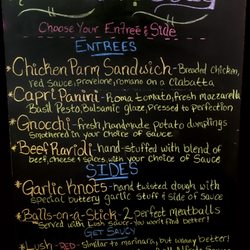 Choose Your Entree & Side
ENTREES
*Chicken Parm Sandwich - Breaded chicken,
red sauce, provolone, romano on a Ciabatta
*Capri Panini - Roma tomato, fresh mozzarella
Basil Pesto, balsamic glaze, Pressed to Perfection
*Gnocchi - fresh, handmade potato dumplings
smothered in your choice of sauce
*Beef Ravioli - hand-stuffed with blend of
beef, cheese & spices with your choice of Sauce
SIDES
*Garlic Knots - hand twisted dough with
special buttery garlic stuff & side of sauce
*Balls-on-a-Stick - 2 perfect meatballs
Served with Lush sauce You won't find better!
GET SAUCY
*Lush - RED - Similar to marinara, but waaay better!